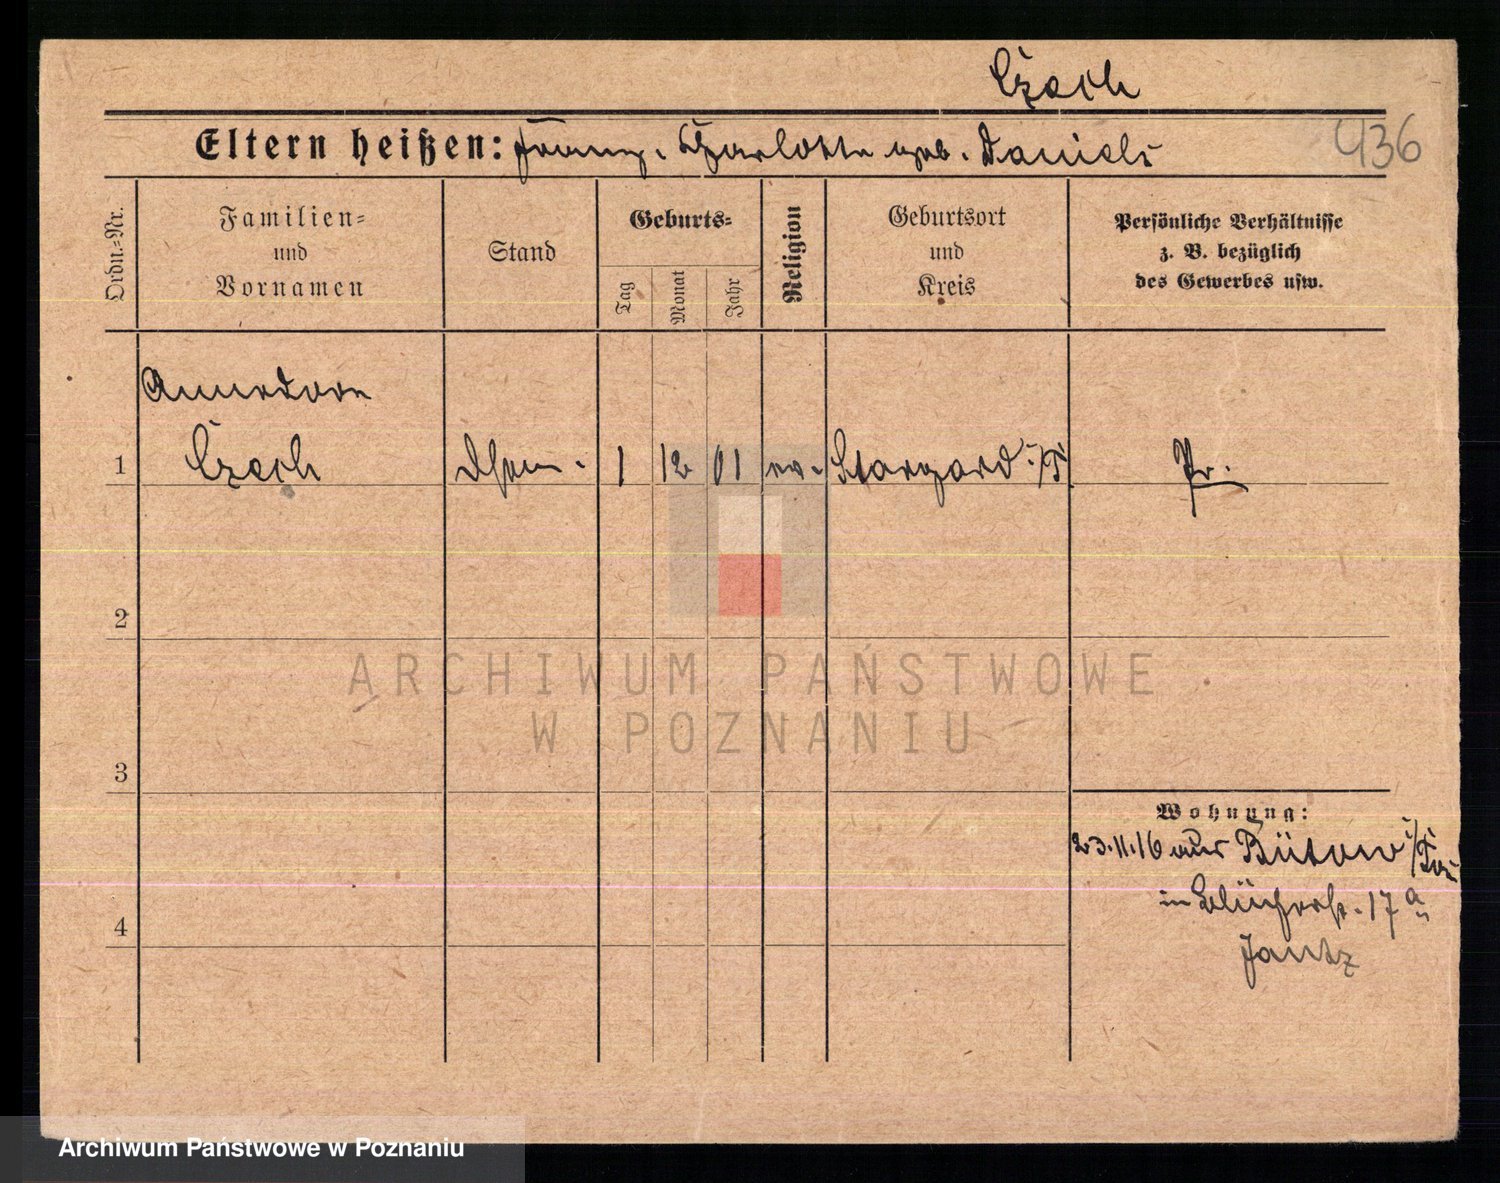 Czech
Eltern heißen: Franz. Charlotte geb. Daniels
436
Ordn.=Nr.
Familien=
und
Vornamen
Stand
Geburts=
Tag
Monat
Jahr
Religion
Geburtsort
und
Kreis
Persönliche Verhältnisse
z. B. bezüglich
des Gewerbes usw.
Annedore
1 Czech 1 12 01 ev. Stargard i/P Pr.
2
3
4
Wohnung:
23.11.16 aus Bütow i/Pom
in Blücherstr. 17 a
Jantz
ARCHIWUM PAŃSTWOWE
W POZNANIU
Archiwum Państwowe w Poznaniu